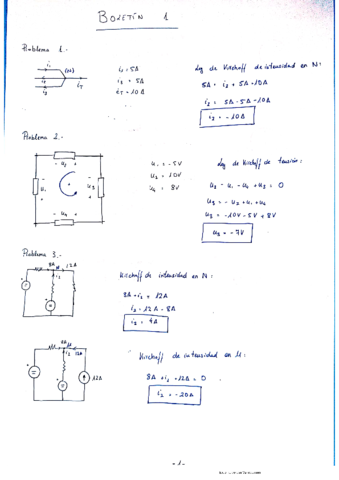 BOLETÍN 1
Problema 1.-
i₁
(N)
i₂
i₃
i_T
i₁ = 5A
i₃ = 5A
i_T = 10A
Ley de Kirchoff de intensidad en N:
5A + i₂ + 5A = 10A
i₂ = 5A - 5A - 10A
i₂ = -10A
Problema 2.-
+ u₂ -
u₁
u₃
- u₄ +
u₁ = -5V
u₂ = 10V
u₄ = 8V
Ley de Kirchoff de tensión:
u₃ - u₁ - u₄ + u₂ = 0
u₃ = - u₂ + u₁ + u₄
u₃ = -10V - 5V + 8V
u₃ = -7V
Problema 3.-
8A
12A
i₂
Kirchoff de intensidad en N:
8A + i₂ = 12A
i₂ = 12A - 8A
i₂ = 4A
8A
12A
i₂
12A
Kirchoff de intensidad en M:
8A + i₂ + 12A = 0
i₂ = -20A
- 1 -